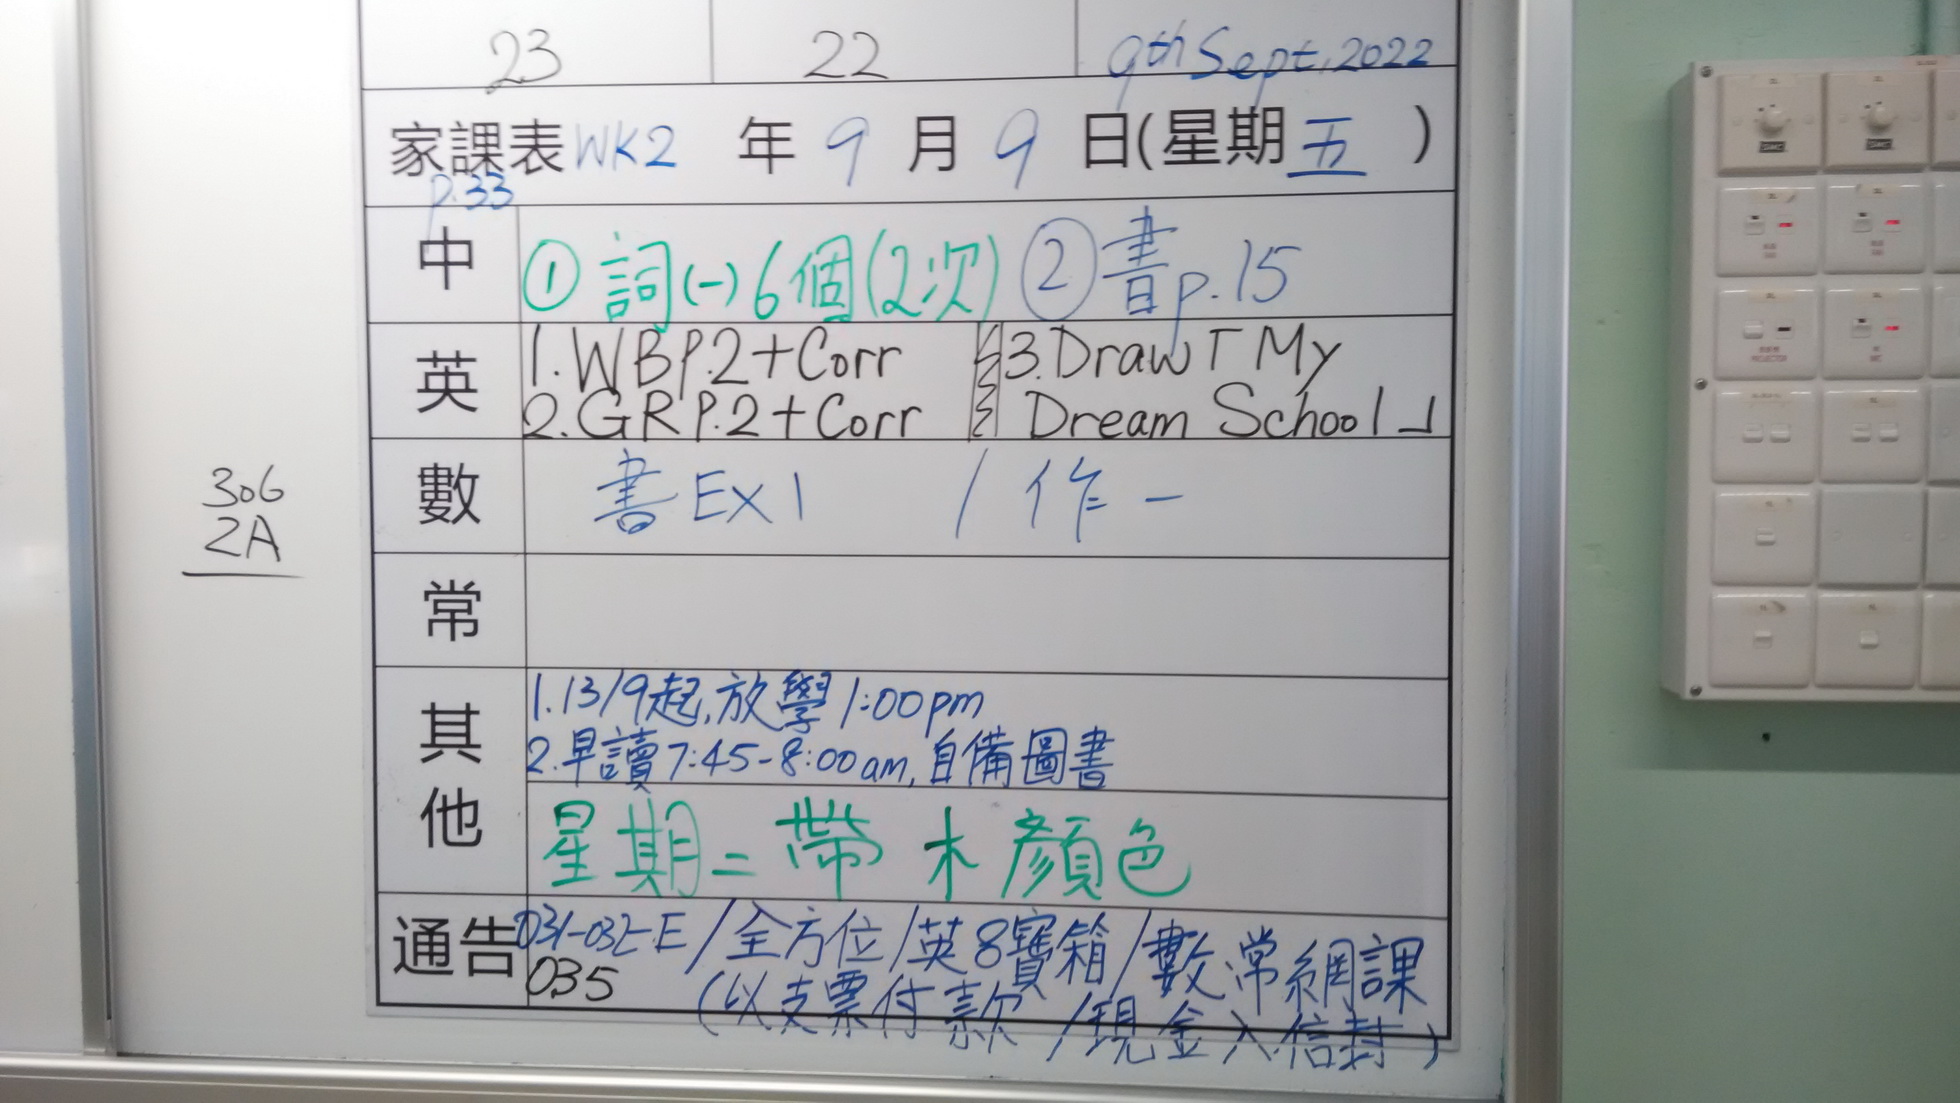 23 22 9th Sept, 2022
家課表 WK2 年 9 月 9 日(星期五)
p.33
中 ① 詞(一)6個(2次) ② 書p.15
英 1. WB P.2 + Corr 3. Draw「My
2. GR P.2 + Corr Dream School」
數 書 EX 1 / 作一
常
306
2A
其他
1. 13/9起,放學1:00pm
2. 早讀7:45-8:00am,自備圖書
星期二帶木顏色
通告 031-032-E / 全方位 / 英8寶箱 / 數常網課
035 (以支票付款 / 現金入信封)